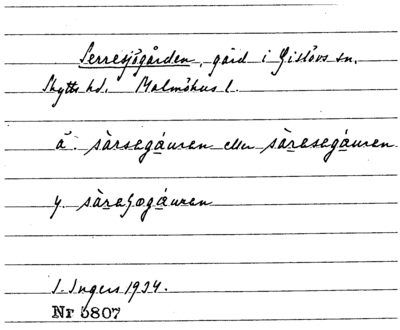 Serresjögården, gård i Gislövs sn.
Skytts hd. Malmöhus l.
ä. sàrsegá̱uren eller sàr̲esegá̱uren
y. sàr̲eʃogá̱uren
I. Ingers 1934.
Nr 5807